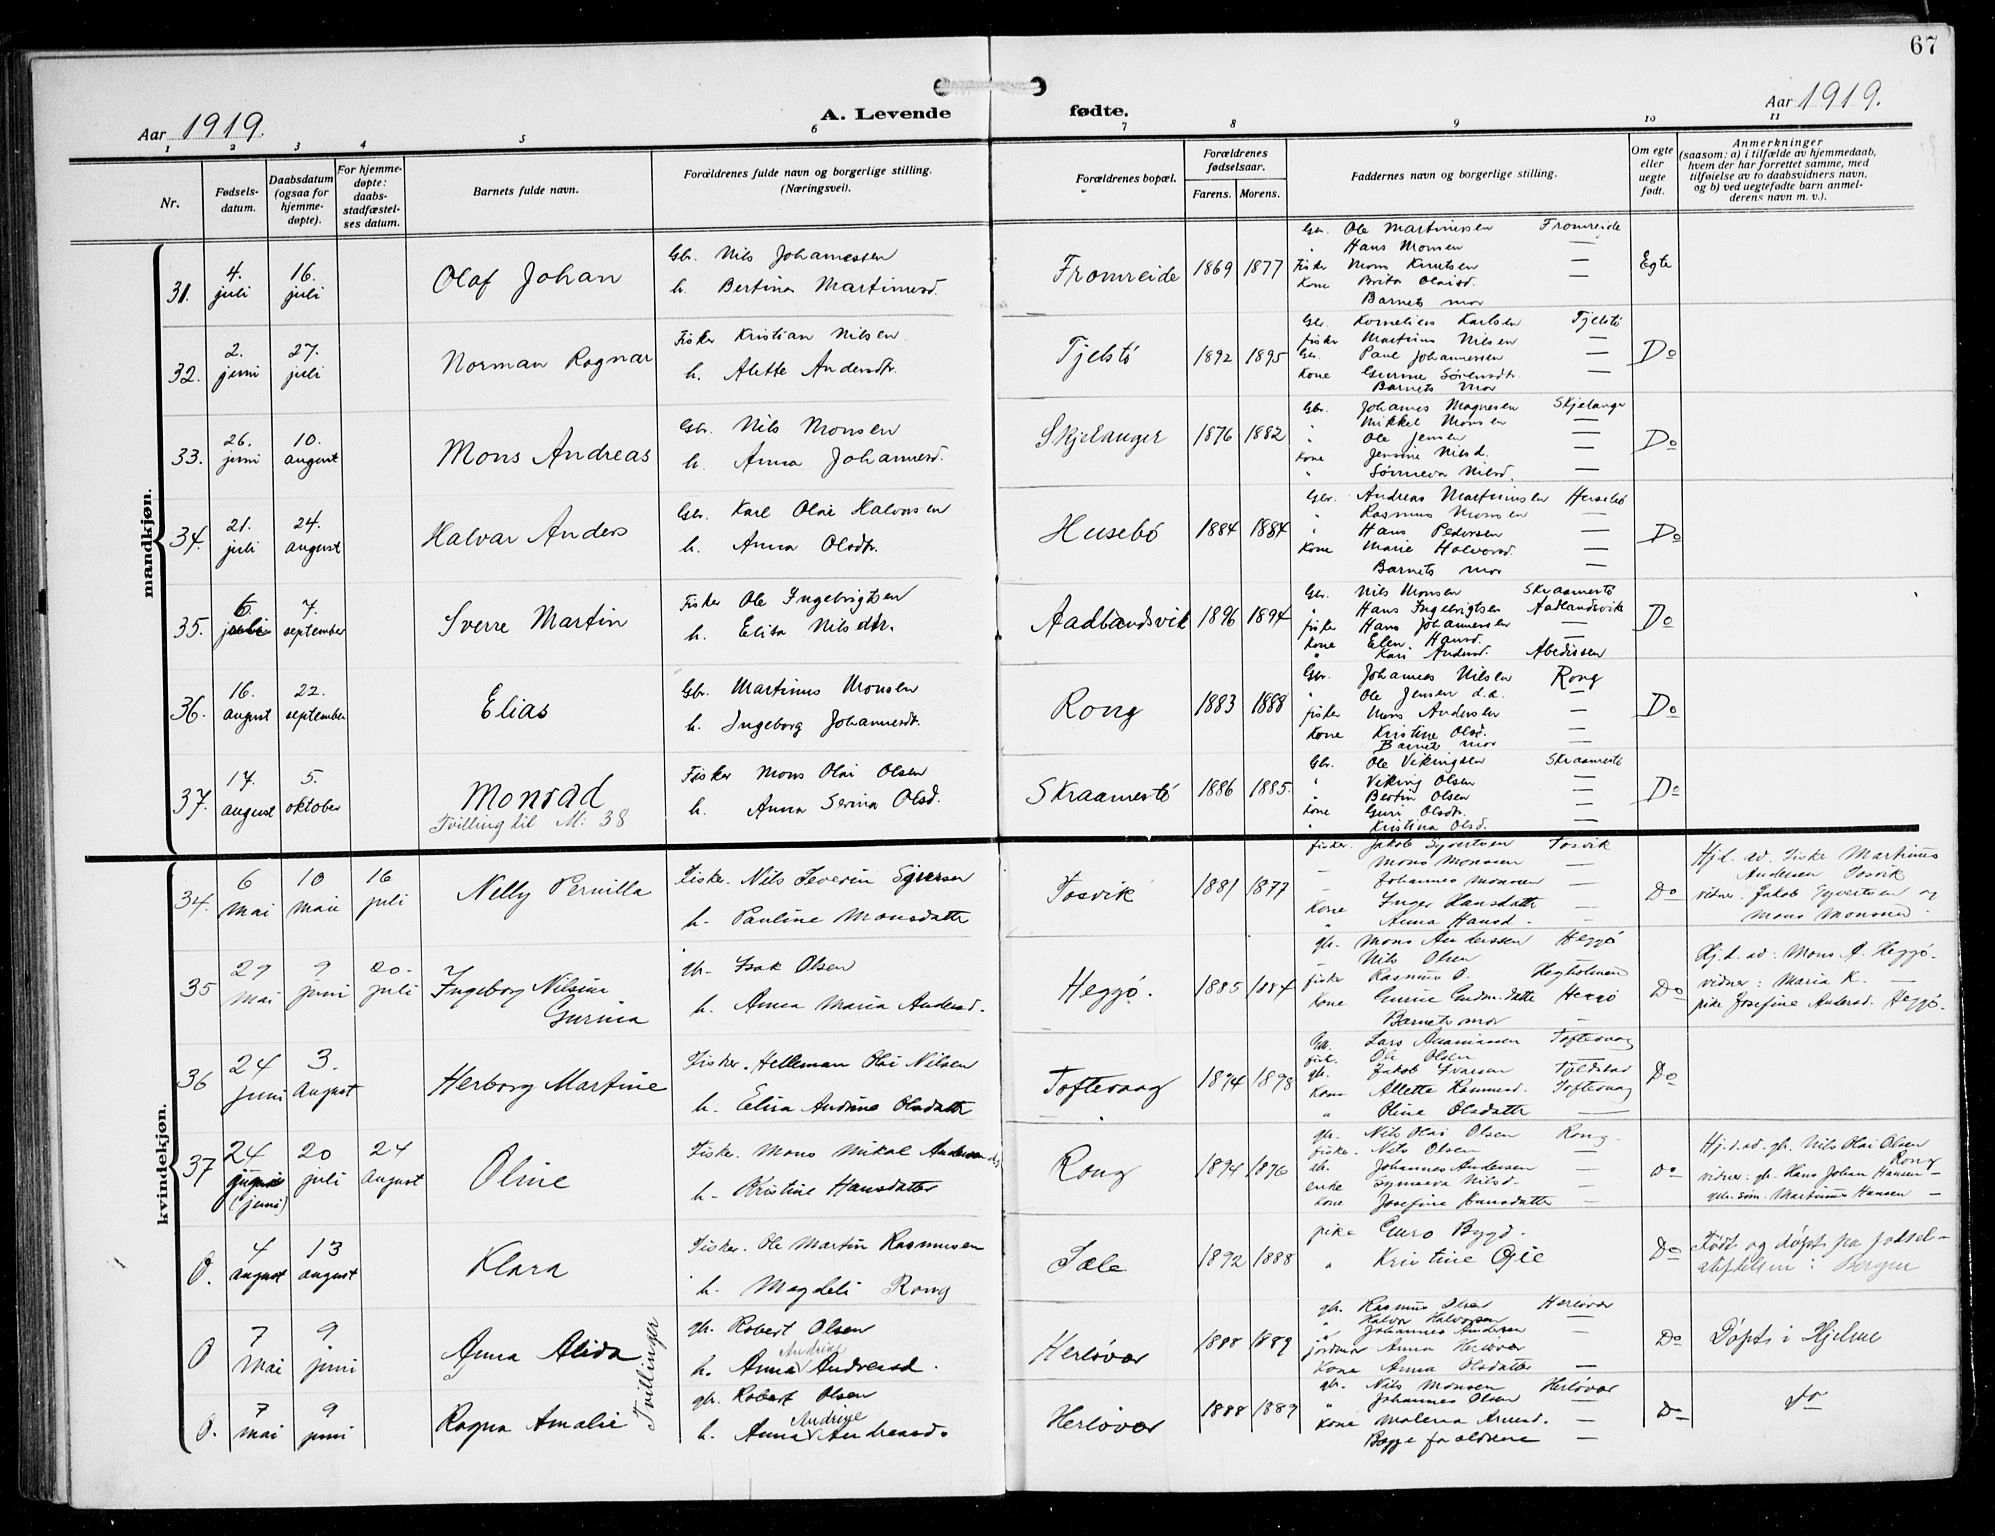 67
Aar 1919.
A. Levende fødte.
Aar 1919.
1 2 3 4 5 6 7 8 9 10 11
Nr.
Fødsels-
datum.
Daabsdatum
(ogsaa for
hjemme-
døpte).
For hjemme-
døpte:
daabs-
stadfæstel-
ses datum.
Barnets fulde navn.
Forældrenes fulde navn og borgerlige stilling.
(Næringsvei).
Forældrenes bopæl.
Forældrenes
fødselsaar.
Farens. Morens.
Faddernes navn og borgerlige stilling.
Om egte
eller
uegte
født.
Anmerkninger
(saasom: a) i tilfælde av hjemmedaab,
hvem der har forrettet samme, med
tilføielse av to daabsvidners navn,
og b) ved uegtefødte barn anmel-
derens navn m. v.).
mandkjøn.
31. 4. juli 16. juli Olaf Johan
Gbr. Nils Johannessen
h. Bertina Martinusd.
Fromreide 1869 1877
Gbr. Ole Martinussen Fromreide
" Hans Monsen —
Fisker Mons Knutsen —
Kone Brita Olaisd. —
Barnets mor
Egte
32. 2. juni 27. juli Norman Ragnar
Fisker Kristian Nilsen
h. Alette Andersdtr.
Tjelstö 1892 1895
Gbr. Kornelius Karlsen Tjelstö
fisker Martinus Nilsen —
Gbr. Paul Johannessen —
Kone Gurine Sörensdtr —
Barnets mor
Do
33. 26. juni 10. august Mons Andreas
Gbr. Nils Monsen
h. Anna Johannesd.
Skjelanger 1876 1882
Gbr. Johannes Magnesen Skjelanger
" Mikkel Monsen —
" Ole Jensen —
Kone Jensine Nilsd. —
" Sönneva Nilsd. —
Do
34. 21. juli 24. august Halvar Anders
Gbr. Karl Olai Halvorsen
h. Anna Olsdtr.
Husebö 1884 1884
Gbr. Andreas Martinussen Husebö
" Rasmus Monsen —
" Hans Pedersen —
Kone Marie Halvorsd. —
Barnets mor —
Do
35. 6. juli 7. september Sverre Martin
Fisker Ole Ingebrigtsen
h. Elisa Nilsdtr.
Aadlandsvik 1896 1894
Gbr. Nils Monsen Skraamestö
" Hans Ingebrigtsen Aadlandsvik
fisker Hans Johannessen —
Kone Elen Hansd. —
" Kari Andersd.
Do
36. 16. august 22. september Elias
Gbr. Martinus Monsen
h. Ingeborg Johannesdtr.
Rong 1883 1888
Gbr. Johannes Nilsen Rong
" Ole Jensen d.æ. —
fisker Mons Andersen —
Kone Kristine Olsd. —
Barnets mor —
Do
37. 17. august 5. oktober Monrad
Tvilling til M: 38
Fisker Mons Olai Olsen
h. Anna Serina Olsd.
Skraamestö 1886 1885.
Gbr. Ole Vikingsen Skraamestö
" Viking Olsen —
" Bertin Olsen —
Kone Guri Olsdtr. —
" Kristina Olsd. —
Do
kvindekjøn.
34. 6 mai 10 mai 16 juli Nelly Pernilla
Fisker. Nils Severin Syversen
h. Pauline Monsdatter
Tosvik 1881 1877
fisker. Jakob Syvertsen Tosvik
— Mons Monsen —
— Johannes Monsen —
Kone Inger Hansdatter —
" Anna Hansd. —
Do
Hjd. av. Fisker Martinus
Andersen Tosvik
vidner. Jakob Syvertsen og
Mons Monsen.
35 29 mai 9 juni 20. juli Ingeborg Nilsine
Gurina
gbr. Isak Olsen
h. Anna Maria Andersd.
Heggö. 1885 1884
gbr. Mons Anderssen Heggö
— Nils Olsen —
fisker Rasmus O. Hegholmen
Kone Gurine Gudm.datter Heggö
Barnets mor —
Do
Hj.d. av: Mons A. Heggö.
vidner: Maria K. —
pike Josefine Andersd. Heggö.
36 24 juni 3. August Herborg Martine
Fisker. Helleman Olai Nilsen
h. Elisa Andrine Olsdatter
Toftevaag 1894 1898
Gbr. Lars Toftevaag
fisk. Ole Olsen —
gbr. Jakob Ivarsen
Kone Allette Rasmusd. Toftevaag
" Oline Olsdatter —
Do
37 24 (juni) 20 juli 24 August Oline
Fisker. Mons Mikal Andersen
h. Kristine Hansdatter
Rong 1894 1896
gbr. Nils Olai Olsen Rong.
fisker. Nils Olsen —
gbr. Johannes Andersen —
enke Synneva Nilsd. —
Kone Josefine Hansdatter —
Do
Hj.d.av. gbr. Nils Olai Olsen
Rong
vidner: gbr. Hans Johan Hansen —
gbr. søn. Martinus Hansen —
O. 4 august 13 august Klara
Fisker. Ole Martin Rasmusen
h. Magdeli Rong
Sæle 1892 1888
pike Guro Bygd.
" Kristine Opie
Do
Født og døpt pa fødsel-
stiftelsen i Bergen
O 7 mai 9 juni Anna Alida
Tvillinger
gbr. Robert Olsen
h. Anna Andrine Andreasd.
Herløvær 1888 1889
gbr. Rasmus Olsen Herløvær
" Halvor Halvorsen —
" Johannes Andersen —
jordmor Anna Herløvær
Kone Anna Olsdatter —
Do
Døpt i Hjelme
O. 7 mai 9 juni Ragna Amalie
gbr. Robert Olsen
h. Anna Andrine Andreasd.
Herløvær 1888 1889
gbr. Nils Monsen Herløvær
" Johannes Olsen —
Kone Malena —
Begge forældrene —
Do
do